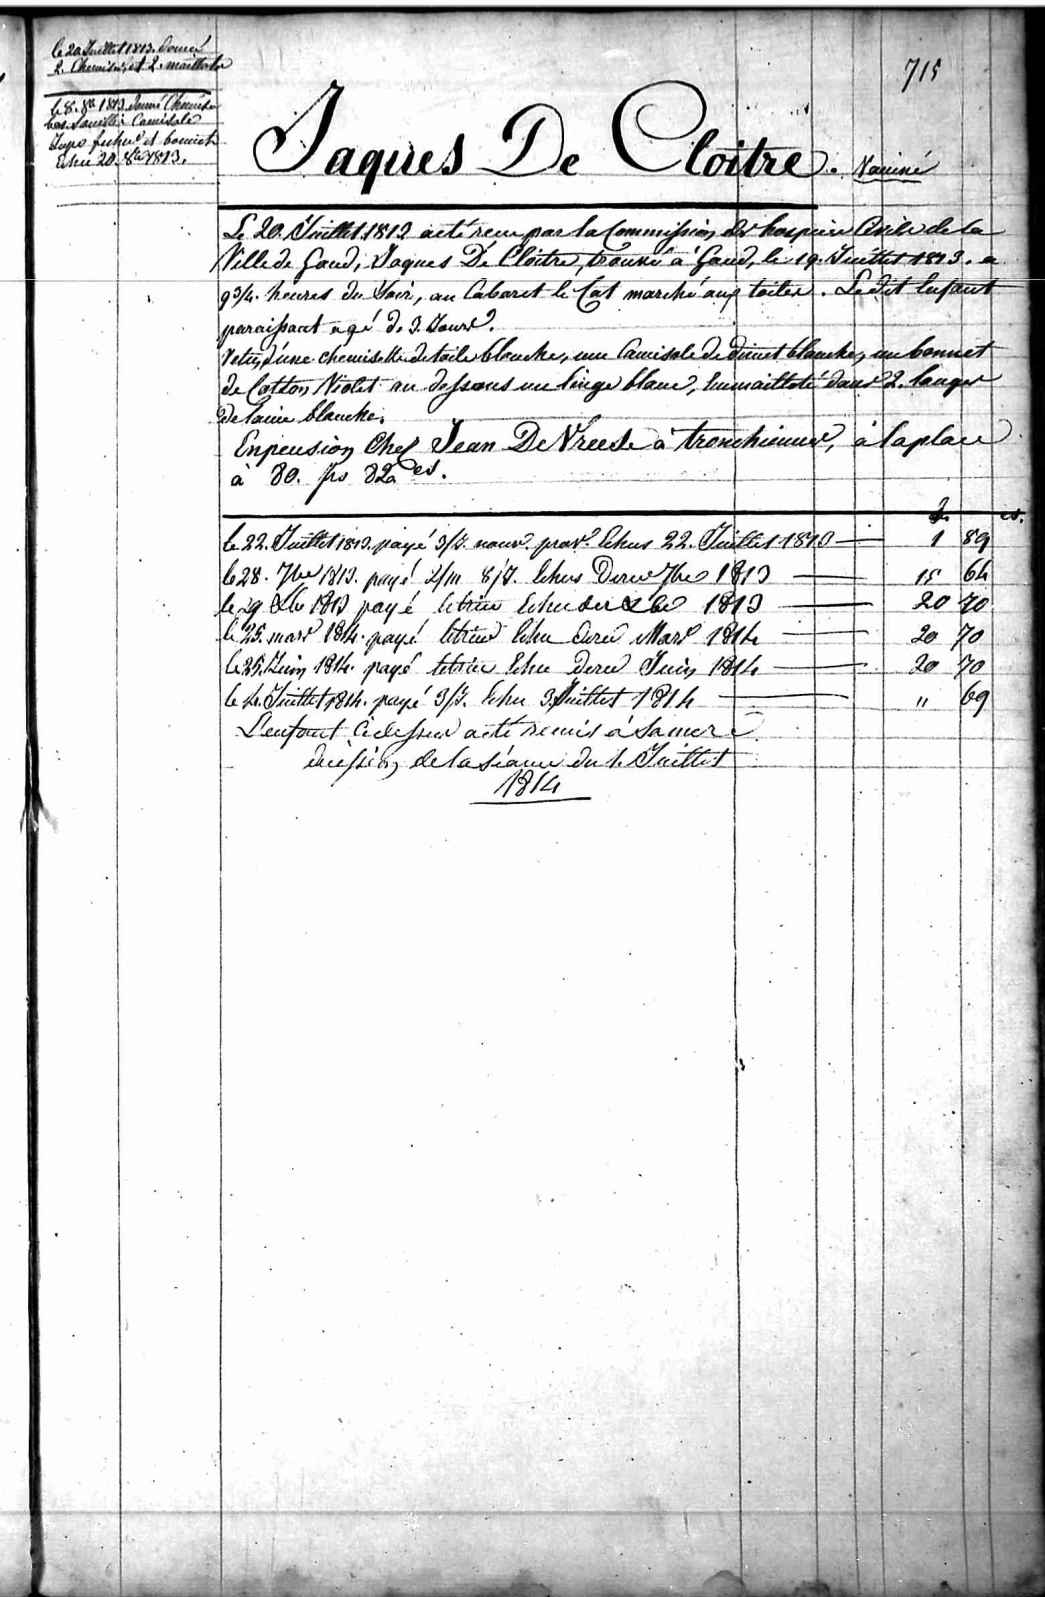 le 20 Juillet 1813. donné
2. Chemises et 2. maillots
le 8. 8bre 1813 donné Chemise
bas. Camisole
Jupe fichu et bonnet
Echu 20. 8bre 1813.
715
Jaques De Cloitre. Vacciné
Le 20. Juillet 1813 a été recu par la Commission des hospices Civils de la
Ville de Gand, Jaques De Cloitre, trouvé à Gand, le 19. Juillet 1813. a
9 3/4. heures du Soir, au Cabaret le Cat marché aux toiles. Le dit Enfant
paraissant agé de 3. Jours.
Vetu, d'une chemisette de toile blanche, une Camisole de dimet blanche, un bonnet
de Cotton Violet au dessous un linge blanc, Emmailloté dans 2. langes
de laine blanche.
En pension Chez Jean De Vreese à tronchiennes, à la place
à 80. frs 82 es.
f. cs.
le 22. Juillet 1813. payé 3/J. nouv. prov. Echus 22. Juillet 1813 1 89
le 28. 7bre 1813. payé 2/m 8/J. Echus Dern 7bre 1813 15 64
le 29 Xbre 1813 payé letrim Echu der Xbre 1813 20 70
le 25. mars 1814. payé letrim Echu dern Mars 1814 20 70
le 25. Juin 1814. payé letrim Echu dern Juin 1814 20 70
le 4. Juillet 1814. payé 3/J. Echu 3. Juillet 1814 " 69
L'enfant Ci dessus a été remis à sa mere
décission de la séance du 1. Juillet
1814